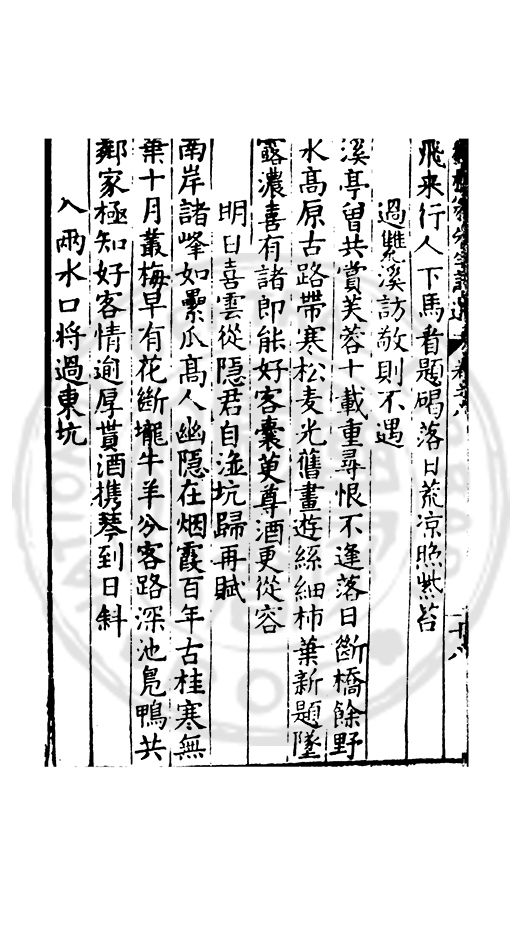 飛来行人下馬看題碣落日荒凉照紫苔
過雙溪訪敬則不遇
溪亭曾共賞芙蓉十載重尋恨不逢落日斷橋餘野
水高原古路帶寒松麦光舊畫遊絲細柿葉新題墜
露濃喜有諸郎能好客囊萸尊酒更從容
明日喜雲從隱君自湴坑歸再賦
南岸諸峰如纍瓜高人幽隱在烟霞百年古桂寒無
葉十月叢梅早有花斷壠牛羊分客路深池鳬鴨共
鄰家極知好客情逾厚貰酒携琴到日斜
入兩水口将過東坑